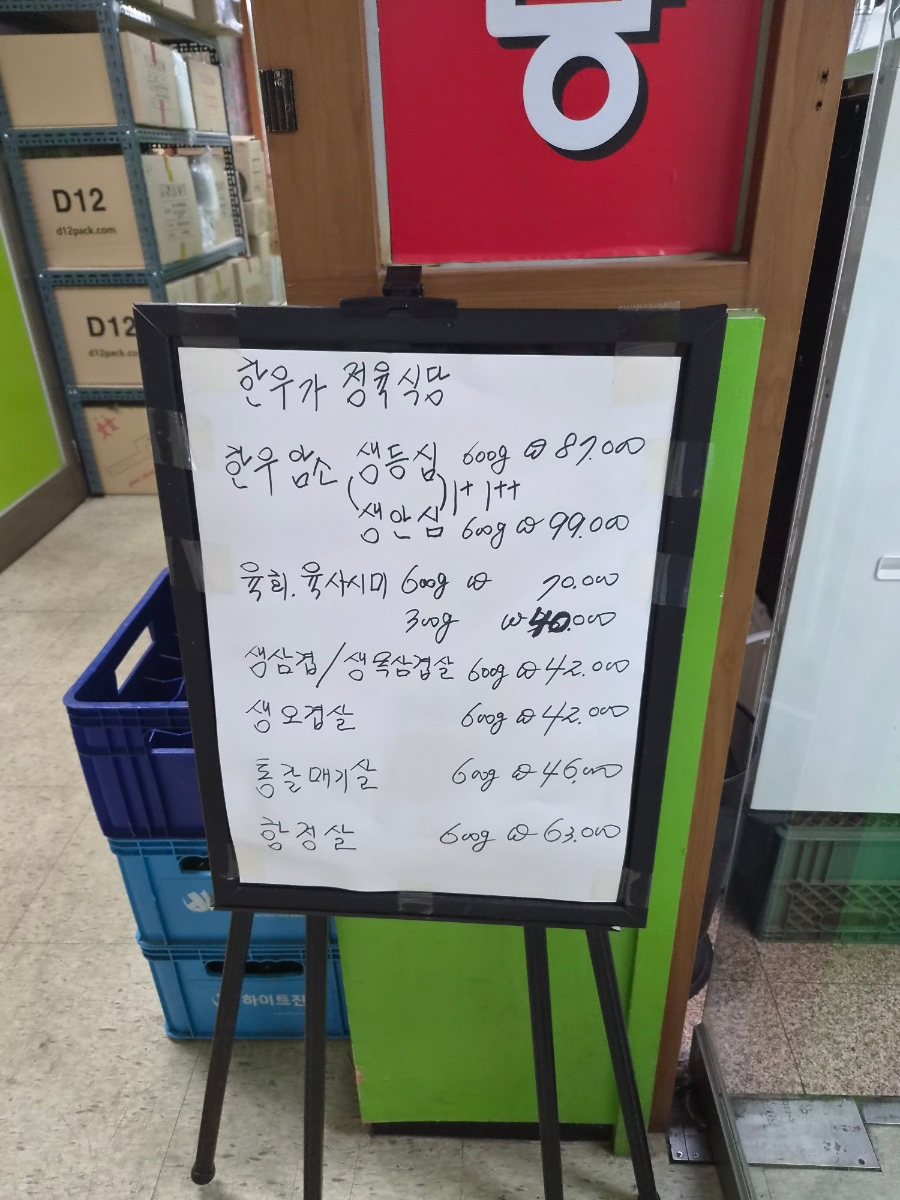 D12
d12pack.com
D12
d12pack.co
한우가 정육식당
한우암소 (생등심 600g ₩ 87.000
) 1+ 1++
생안심 600g ₩ 99.000
육회. 육사시미 600g ₩ 70.000
300g ₩ 40.000
생삼겹/생목삼겹살 600g ₩ 42.000
생오겹살 600g ₩ 42.000
통갈매기살 600g ₩ 46.000
항정살 600g ₩ 63.000
하이트진